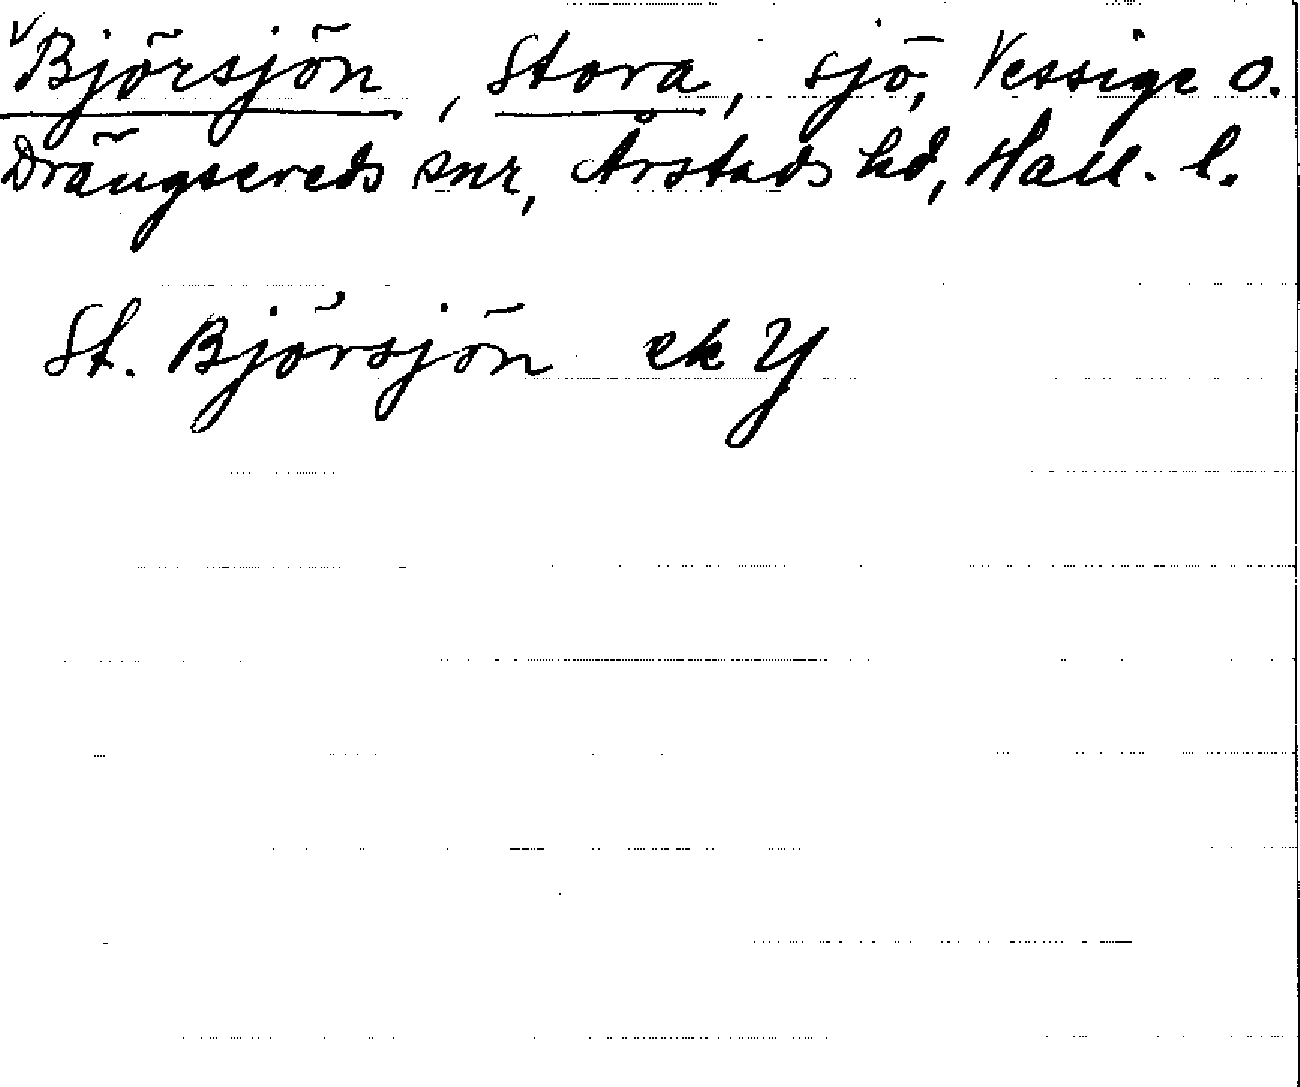 Björsjön, Stora, sjö, Vessige o.
Drängsereds snr, Årstads hd, Hall. l.
St. Björsjön ek Y